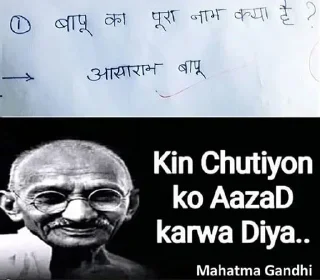 ① बापू का पूरा नाम क्या है ?
→ आसाराम बापू
Kin Chutiyon
ko AazaD
karwa Diya..
Mahatma Gandhi